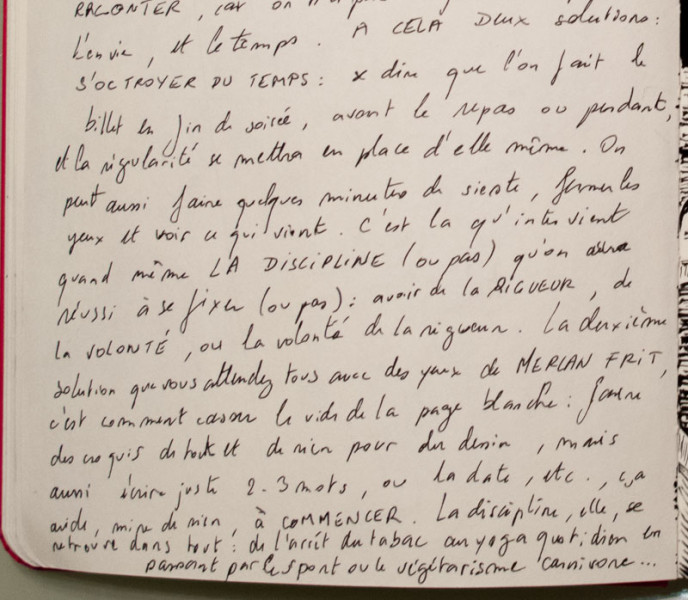 RACONTER, car on n'a
L'envie, et le temps. A CELÀ DEUX solutions:
S'OCTROYER DU TEMPS: x dire que l'on fait le
billet en fin de soirée, avant le repas ou pendant,
et la régularité se mettra en place d'elle même. On
peut aussi faire quelques minutes de sieste, fermer les
yeux et voir ce qui vient. C'est la qu'intervient
quand même LA DISCIPLINE (ou pas) qu'on aura
réussi à se fixer (ou pas): avoir de la RIGUEUR, de
la VOLONTÉ, ou la volonté de la rigueur. La deuxième
solution que vous attendez tous avec des yeux de MERLAN FRIT,
c'est comment casser le vide de la page blanche: faire
des croquis de tout et de rien pour du dessin, mais
aussi écrire juste 2-3 mots, ou la date, etc., ça
aide, mine de rien, à COMMENCER. La discipline, elle, se
retrouve dans tout: de l'arrêt du tabac au yoga quotidien en
passant par le sport ou le végétarisme carnivore...